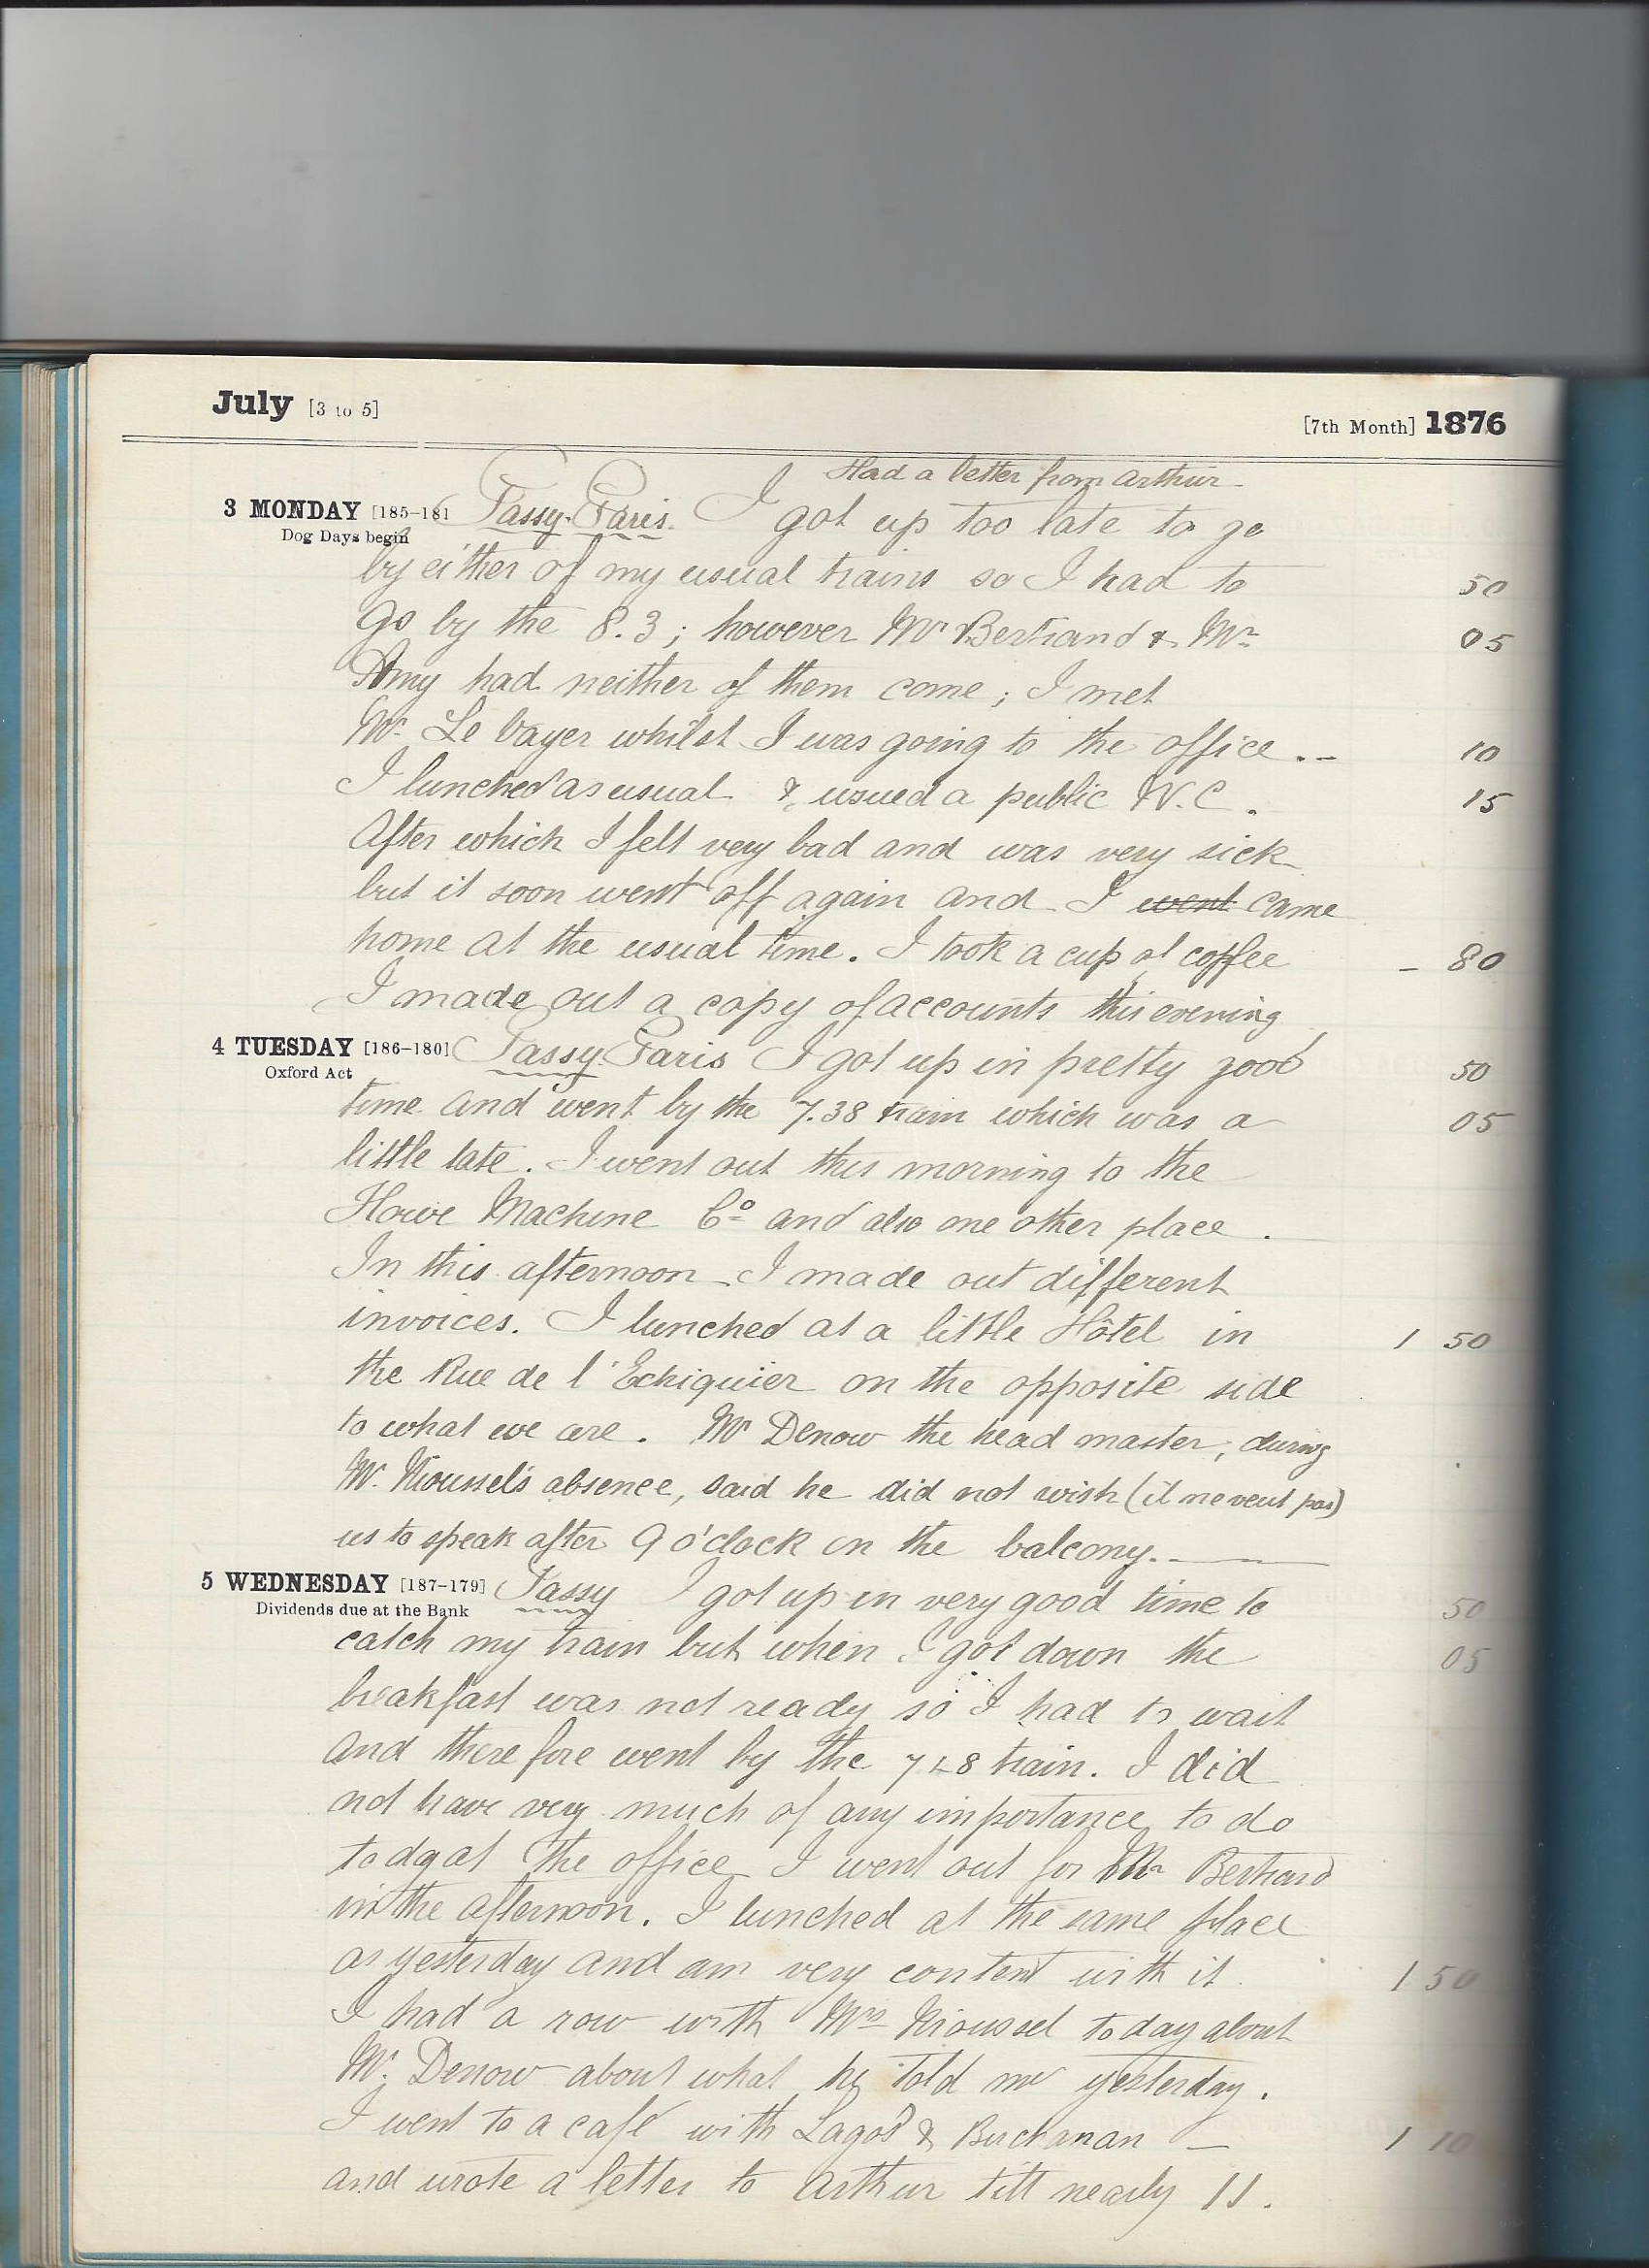 July [3 to 5]
[7th Month] 1876
Had a letter from Arthur
3 MONDAY [185-181] Passy. Paris. I got up too late to go
Dog Days begin
by either of my usual trains so I had to 50
go by the 8.3; however Mr Bertrand & Mr 05
Amy had neither of them come; I met
Mr. Le Vayer whilst I was going to the office .-- 10
I lunched as usual & usued a public W.C. 15
After which I felt very bad and was very sick
but it soon went off again and I went came
home at the usual time. I took a cup of coffee - 80
I made out a copy of accounts this evening
4 TUESDAY [186-180] Passy. Paris I got up in pretty good 50
Oxford Act
time and went by the 7.38 train which was a 05
little late. I went out this morning to the
Howe Machine Co and also one other place.
In this afternoon I made out different
invoices. I lunched at a little Hôtel in 1 50
the Rue de l'Echiquier on the opposite side
to what we are. Mr Denow the head master, during
Mr. Rioussel's absence, said he did not wish (il ne veut pas)
us to speak after 9 o'clock on the balcony.
5 WEDNESDAY [187-179] Passy I got up in very good time to 50
Dividends due at the Bank
catch my train but when I got down the 05
breakfast was not ready so I had to wait
and therefore went by the 7 8 train. I did
not have very much of any importance to do
today at the office I went out for Mr Bertrand
in the afternoon. I lunched at the same place
as yesterday and am very content with it. 1 50
I had a row with Mrs Rioussel today about
Mr. Denow about what he told me yesterday.
I went to a café with Lagos & Buchanan — 1 10
and wrote a letter to Arthur till nearly 11.